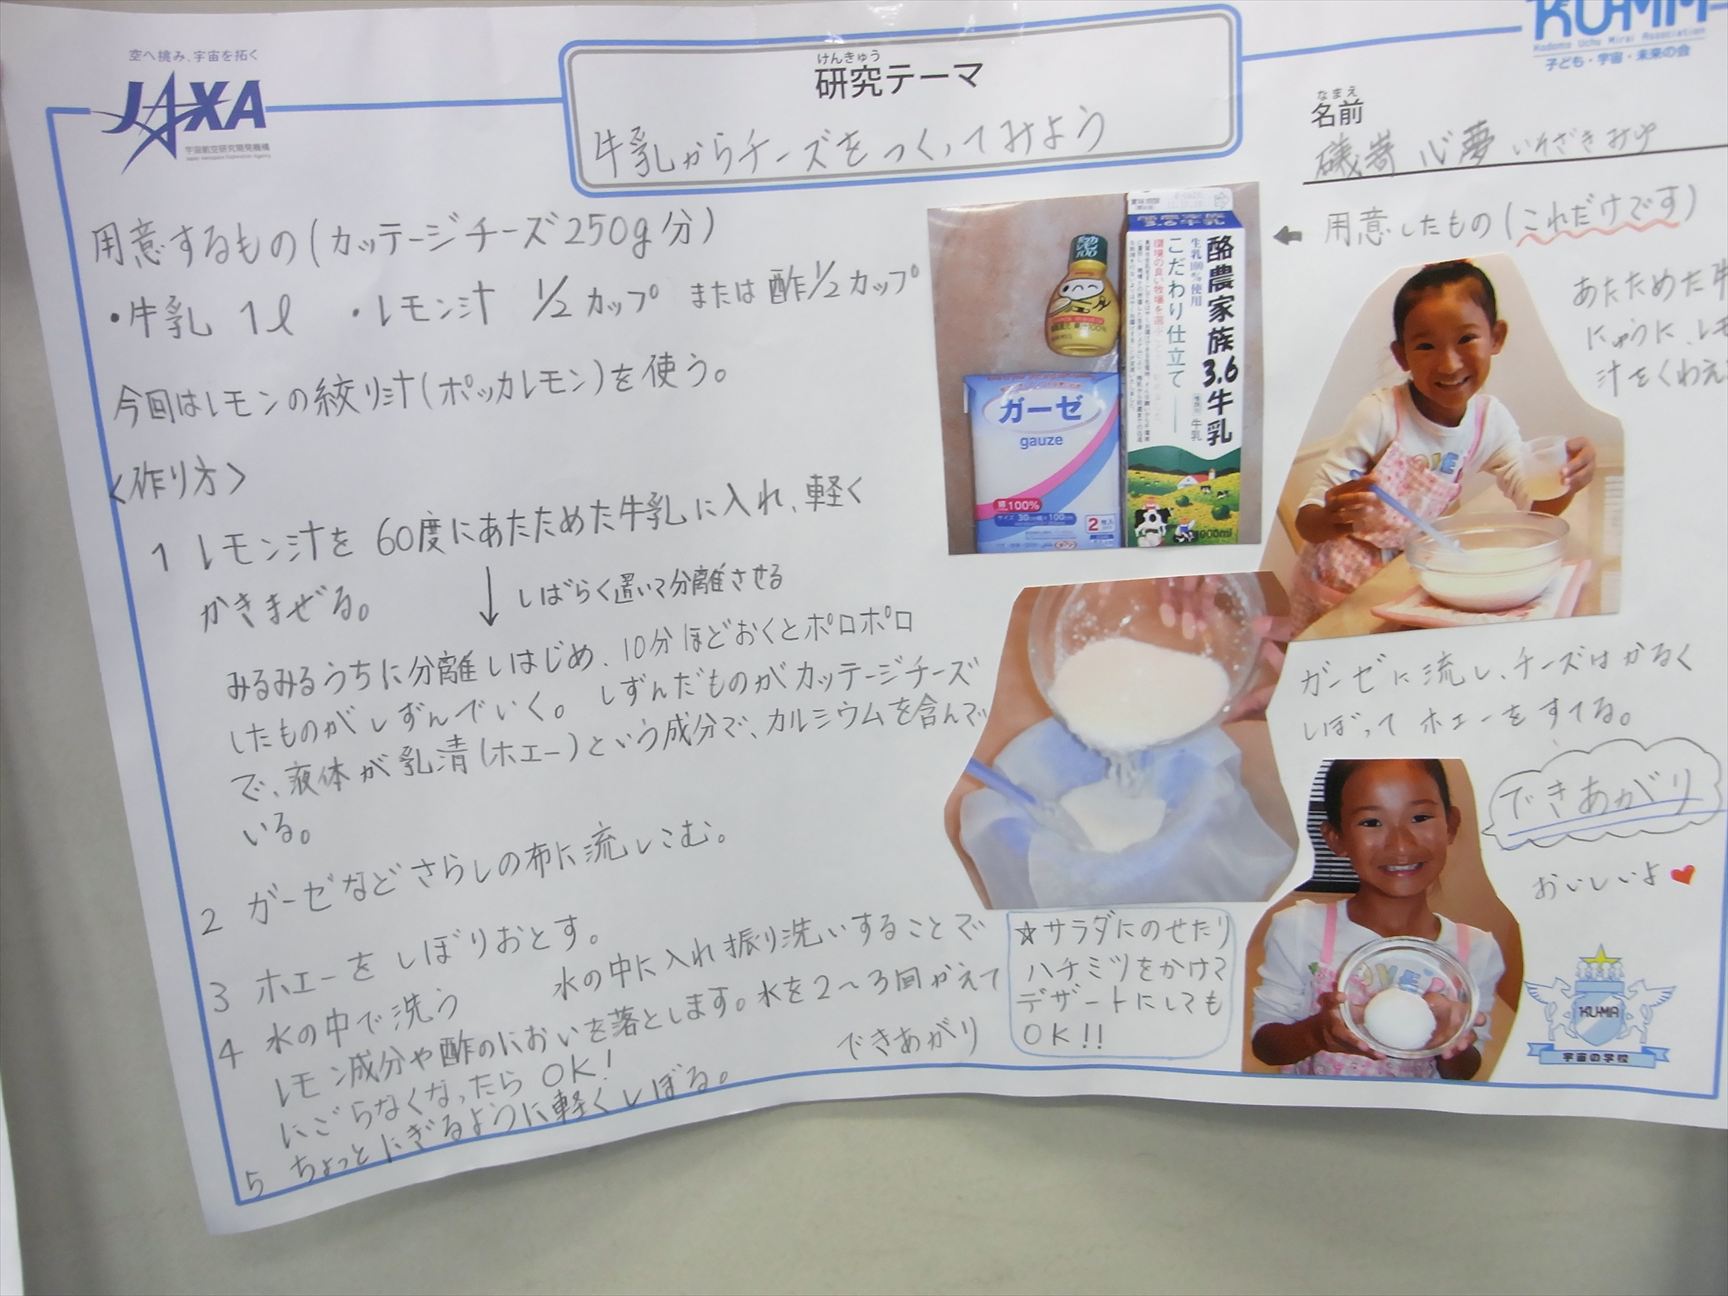 空へ挑み、宇宙を拓く
JAXA
宇宙航空研究開発機構
Japan Aerospace Exploration Agency
けんきゅう
研究テーマ
牛乳からチーズをつくってみよう
KU-MA
Kodomo Uchu Mirai Association
子ども・宇宙・未来の会
なまえ
名前
心夢
用意するもの(カッテージチーズ250g分)
・牛乳 1ℓ ・レモン汁 1/2カップ または酢1/2カップ
今回はレモンの絞り汁(ポッカレモン)を使う。
<作り方>
1 レモン汁を60度にあたためた牛乳に入れ、軽く
かきまぜる。
↓ しばらく置いて分離させる
みるみるうちに分離しはじめ、10分ほどおくとポロポロ
したものがしずんでいく。しずんだものがカッテージチーズ
で、液体が乳清(ホエー)という成分で、カルシウムを含んで
いる。
2 ガーゼなどさらしの布に流しこむ。
3 ホエーをしぼりおとす。
4 水の中で洗う 水の中に入れ振り洗いすることで
レモン成分や酢のにおいを落とします。水を2〜3回かえて
にごらなくなったらOK!
5 ちょっとにぎるように軽くしぼる。
できあがり
ポッカレモン
100
ガーゼ
gauze
綿100%
サイズ 30cm幅×100cm
2枚入
3.6牛乳
生乳100%使用
こだわり仕立て
酪農家族3.6牛乳
牛乳
1000ml
← 用意したもの(これだけです)
あたためた牛
にゅうに、レモ
汁をくわえ
ガーゼに流し、チーズはかるく
しぼってホエーをすてる。
できあがり
おいしいよ♥
☆サラダにのせたり
ハチミツをかけて
デザートにしても
OK!!
KU-MA
宇宙の学校